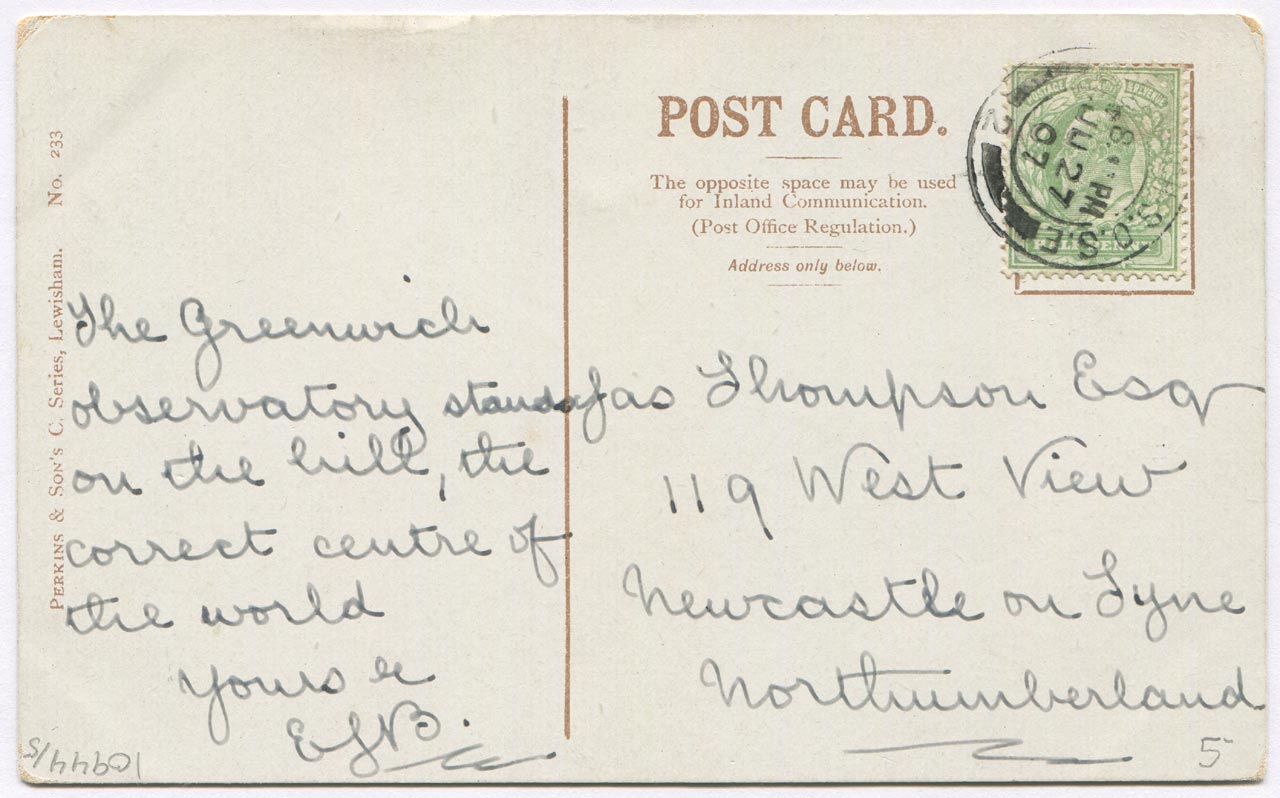 PERKINS & SON'S C. Series, Lewisham. No. 233
POST CARD.
The opposite space may be used
for Inland Communication.
(Post Office Regulation.)
Address only below.
8. PM
JU 27
07
S.O.S.E
2
The Greenwich
observatory stands
on the hill, the
correct centre of
the world
yours &c
EGB.
Jas Thompson Esq
119 West View
Newcastle on Tyne
Northumberland
10944/5
5